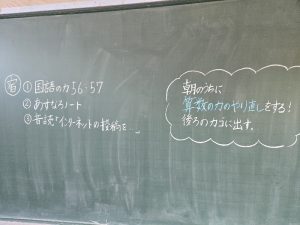 宿 ①国語の力56・57
②あすなろノート
③音読「インターネットの投稿を…」
朝のうちに
算数の力のやり直しをする!
後ろのカゴに出す。